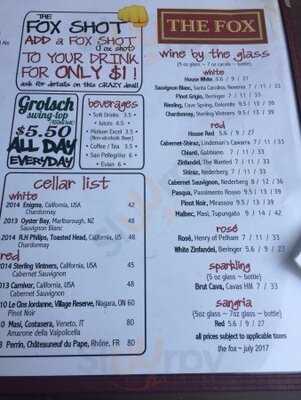 THE
FOX SHOT
ADD a FOX SHOT
(1 oz shot)
TO YOUR DRINK
FOR ONLY $1!
ask for details on this CRAZY deal!
Grolsch
swing-top
$5.50
ALL DAY
EVERYDAY
beverages
• Soft Drinks 3.5 •
• Juices 4.5 •
• Molson Excel 3.5
(Non-Alcoholic Beer)
• Coffee / Tea 3.5 •
• San Pellegrino 6 •
• Evian 6 •
cellar list
white
2014 Enigma, California, USA 42
Chardonnay
2013 Oyster Bay, Marlborough, NZ
Sauvignon Blanc
2014 RLH Philips, Toasted Head, California, US 48
Chardonnay
red
2014 Sterling Vintners, California, USA 45
Cabernet Sauvignon
2013 Carnivor, California, USA 48
Cabernet Sauvignon
Le Clos Jordanne, Village Reserve, Niagara, ON 60
Pinot Noir
Masi, Costasera, Veneto, IT 80
Amarone della Valpolicella
Perrin, Châteauneuf du Pape, Rhône, FR 80
THE FOX
wine by the glass
(5 oz glass ~ 7 oz carafe ~ bottle)
white
House White 5.6 / 9 / 27
Sauvignon Blanc, Santa Carolina, Reserva 7 / 11 / 33
Pinot Grigio, Beringer 7 / 11 / 33
Riesling, Cave Spring, Dolomite 9.5 / 13 / 39
Chardonnay, Sterling Vintners 9.5 / 13 / 39
red
House Red 5.6 / 9 / 27
Cabernet-Shiraz, Lindeman's Cawarra 7 / 11 / 33
Chianti, Gabbiano 7 / 11 / 33
Zinfandel, The Wanted 7 / 11 / 33
Shiraz, Nederberg 7 / 11 / 33
Cabernet Sauvignon, Nederberg 8 / 12 / 36
Pasqua, Passimento Rosso 9.5 / 13 / 39
Pinot Noir, Mirassou 9.5 / 13 / 39
Malbec, Masi, Tupungato 9 / 14 / 42
rosé
Rosé, Henry of Pelham 7 / 11 / 33
White Zinfandel, Beringer 5.6 / 9 / 27
sparkling
(5 oz glass ~ bottle)
Brut Cava, Cavas Hill 7 / 33
sangria
(5oz glass ~ 7oz glass ~ bottle)
Red 5.6 / 9 / 27
all prices subject to applicable taxes
the fox ~ july 2017